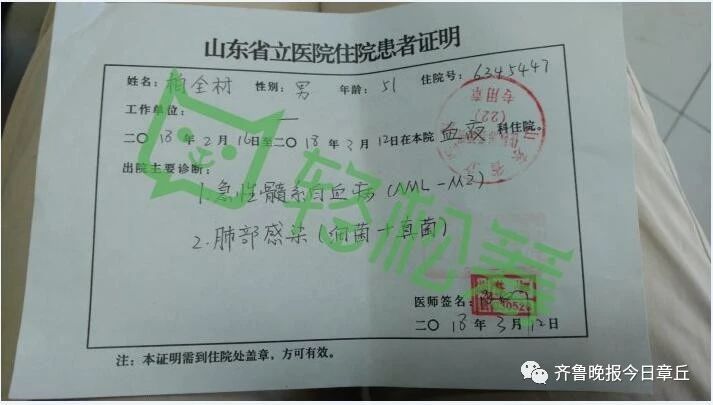 山东省立医院住院患者证明
姓名：相全材 性别：男 年龄：51 住院号：6345447
工作单位：—
二〇18年2月16日至二〇18年3月12日在本院血液科住院。
出院主要诊断：
1.急性髓系白血病(AML-M2)
2.肺部感染(细菌+真菌)
医师签名：
二〇18年3月12日
注：本证明需到住院处盖章，方可有效。
专用章
(22)
轻松筹
齐鲁晚报今日章丘